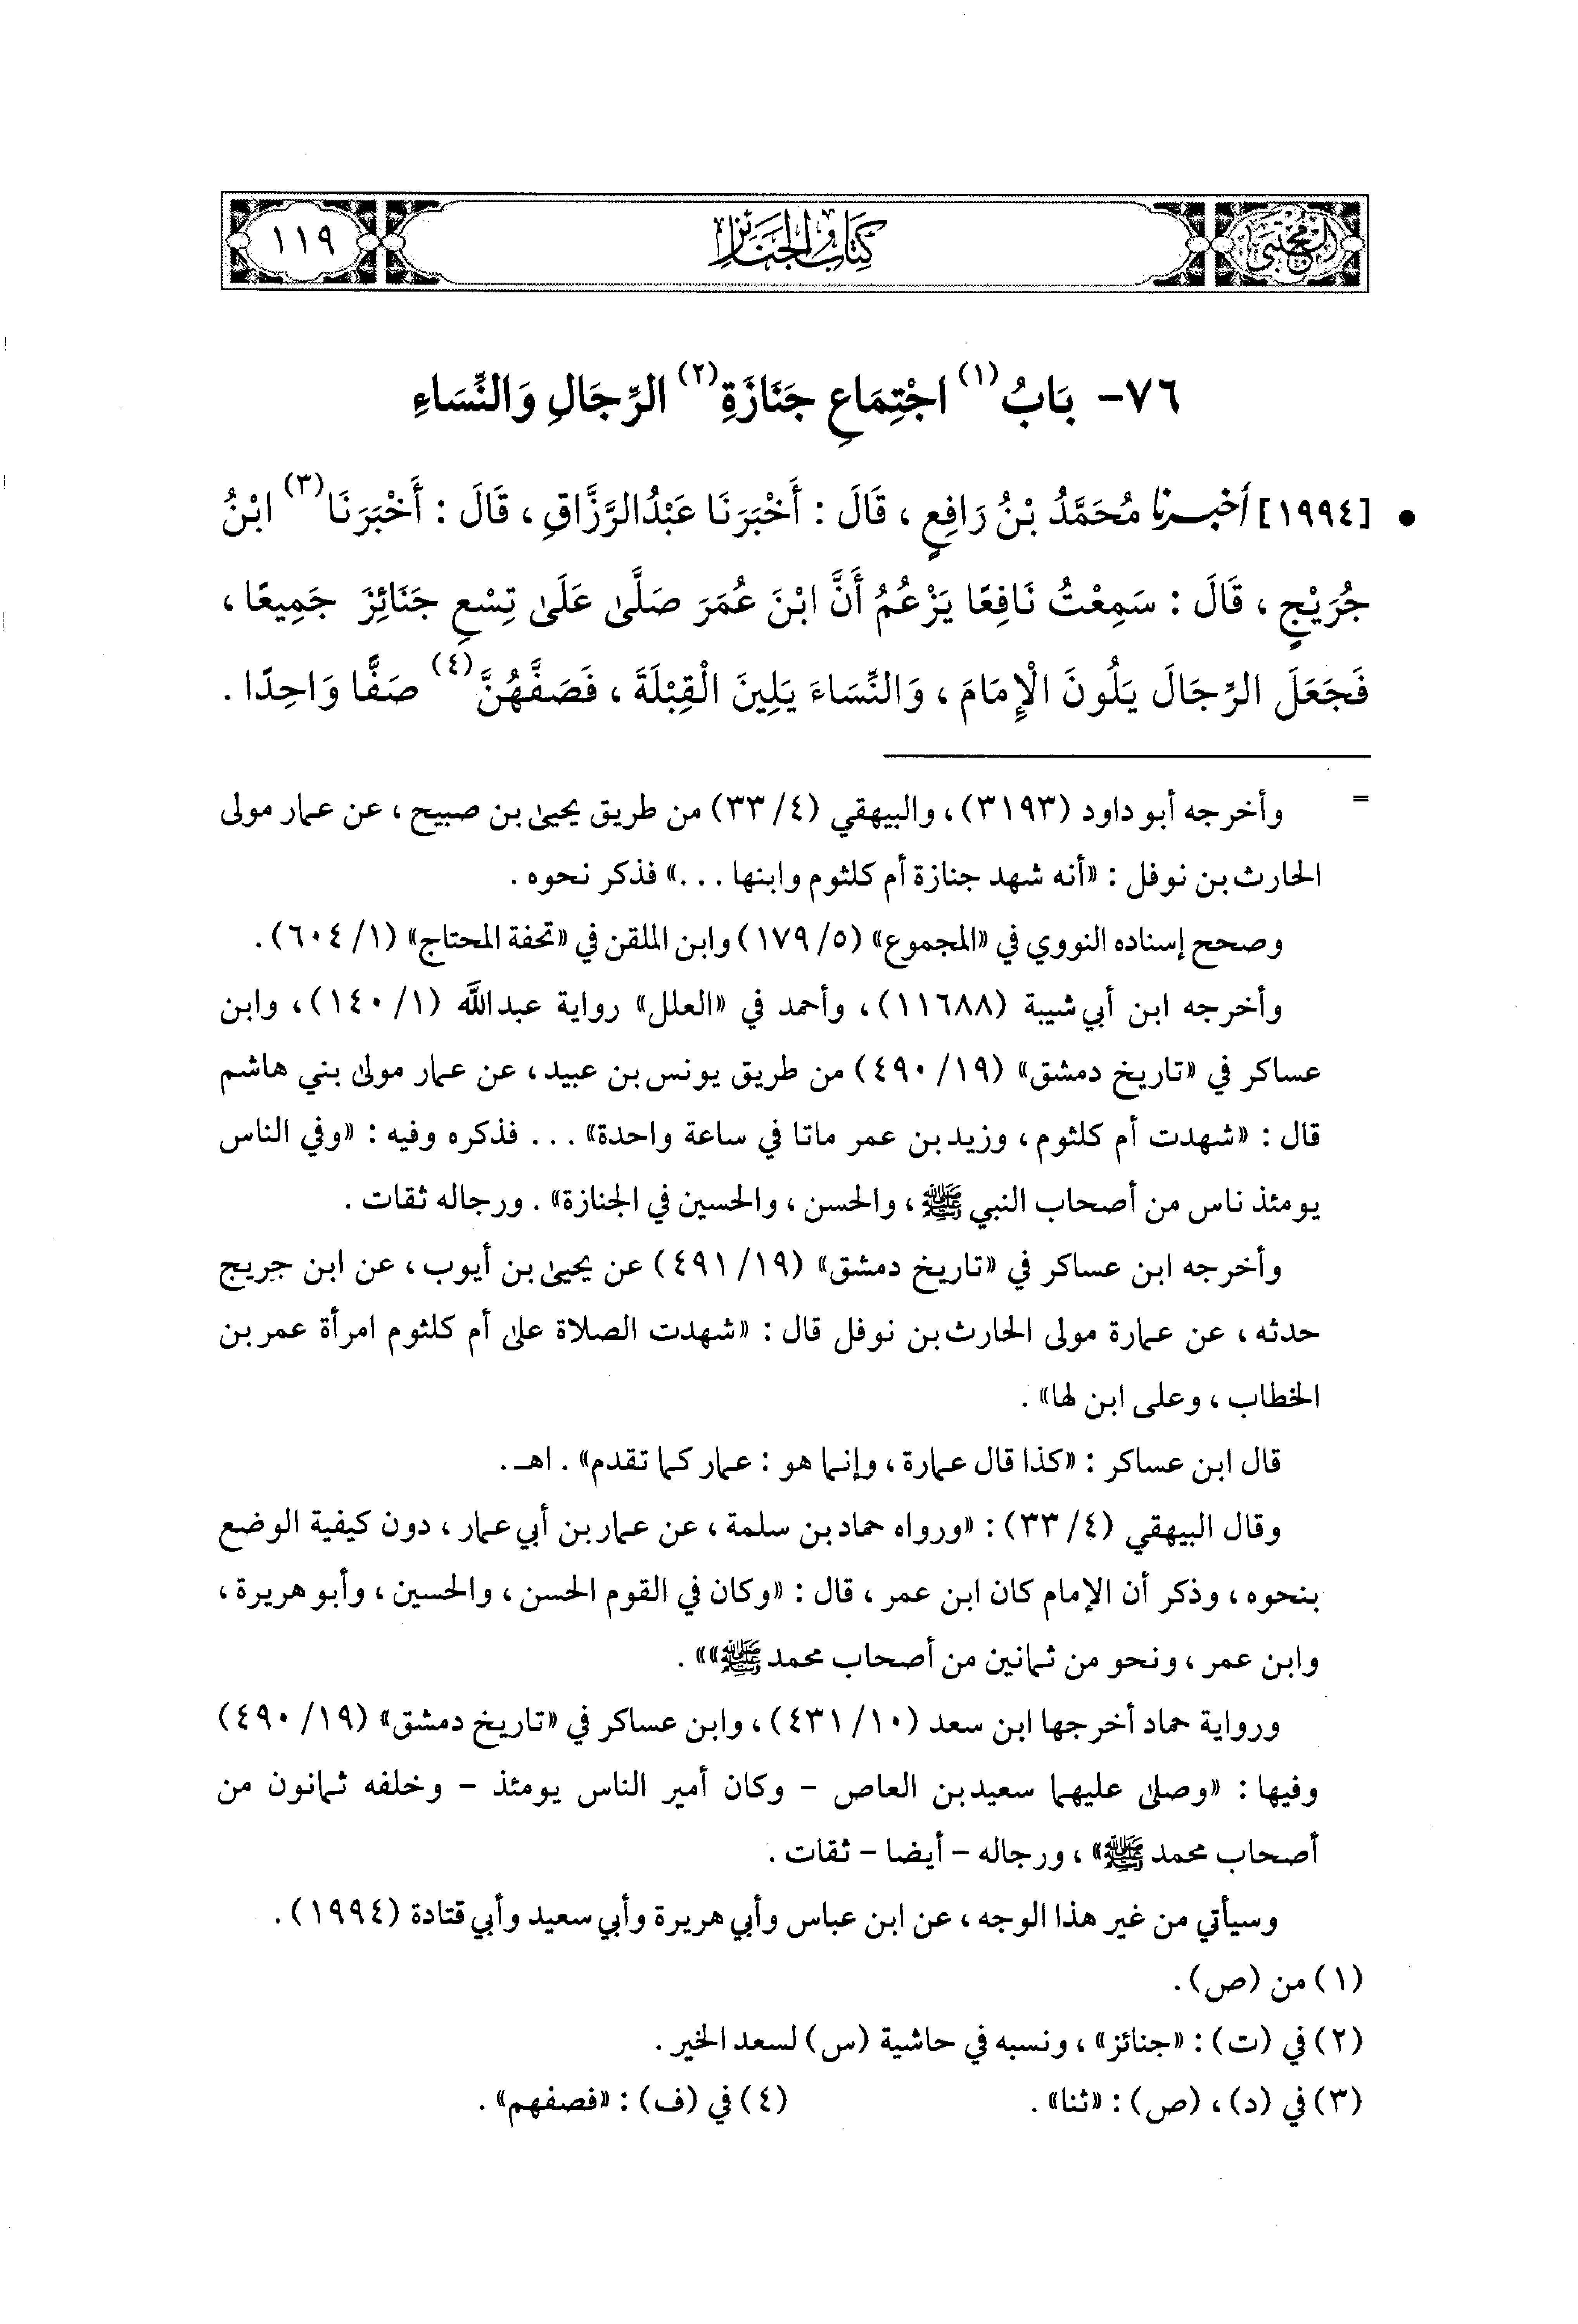 المجتبى
كتاب الجنائز
١١٩
٧٦- بَابُ(١) اجْتِمَاعِ جَنَازَةِ(٢) الرِّجَالِ وَالنِّسَاءِ
• [١٩٩٤] أخبرنا مُحَمَّدُ بْنُ رَافِعٍ، قَالَ: أَخْبَرَنَا عَبْدُالرَّزَّاقِ، قَالَ: أَخْبَرَنَا(٣) ابْنُ
جُرَيْجٍ، قَالَ: سَمِعْتُ نَافِعًا يَزْعُمُ أَنَّ ابْنَ عُمَرَ صَلَّىٰ عَلَىٰ تِسْعِ جَنَائِزَ جَمِيعًا،
فَجَعَلَ الرِّجَالَ يَلُونَ الْإِمَامَ، وَالنِّسَاءَ يَلِينَ الْقِبْلَةَ، فَصَفَّهُنَّ(٤) صَفًّا وَاحِدًا.
= وأخرجه أبو داود (٣١٩٣)، والبيهقي (٤/ ٣٣) من طريق يحيىٰ بن صبيح، عن عمار مولى
الحارث بن نوفل: «أنه شهد جنازة أم كلثوم وابنها ...» فذكر نحوه.
وصحح إسناده النووي في «المجموع» (٥/ ١٧٩) وابن الملقن في «تحفة المحتاج» (١/ ٦٠٤).
وأخرجه ابن أبي شيبة (١١٦٨٨)، وأحمد في «العلل» رواية عبدالله (١/ ١٤٠)، وابن
عساكر في «تاريخ دمشق» (١٩/ ٤٩٠) من طريق يونس بن عبيد، عن عمار مولىٰ بني هاشم
قال: «شهدت أم كلثوم، وزيد بن عمر ماتا في ساعة واحدة» ... فذكره وفيه: «وفي الناس
يومئذ ناس من أصحاب النبي ﷺ، والحسن، والحسين في الجنازة». ورجاله ثقات.
وأخرجه ابن عساكر في «تاريخ دمشق» (١٩/ ٤٩١) عن يحيىٰ بن أيوب، عن ابن جريج
حدثه، عن عمارة مولى الحارث بن نوفل قال: «شهدت الصلاة علىٰ أم كلثوم امرأة عمر بن
الخطاب، وعلى ابن لها».
قال ابن عساكر: «كذا قال عمارة، وإنما هو: عمار كما تقدم». اهـ.
وقال البيهقي (٤/ ٣٣): «ورواه حماد بن سلمة، عن عمار بن أبي عمار، دون كيفية الوضع
بنحوه، وذكر أن الإمام كان ابن عمر، قال: «وكان في القوم الحسن، والحسين، وأبو هريرة،
وابن عمر، ونحو من ثمانين من أصحاب محمد ﷺ»».
ورواية حماد أخرجها ابن سعد (١٠/ ٤٣١)، وابن عساكر في «تاريخ دمشق» (١٩/ ٤٩٠)
وفيها: «وصلىٰ عليهما سعيد بن العاص - وكان أمير الناس يومئذ - وخلفه ثمانون من
أصحاب محمد ﷺ»، ورجاله - أيضا - ثقات.
وسيأتي من غير هذا الوجه، عن ابن عباس وأبي هريرة وأبي سعيد وأبي قتادة (١٩٩٤).
(١) من (ص).
(٢) في (ت): «جنائز»، ونسبه في حاشية (س) لسعد الخير.
(٣) في (د)، (ص): «ثنا». (٤) في (ف): «فصفهم».